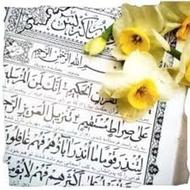 يس
الله الرحمن الرحيم
القرآن الحكيم انك لمن المرسلين
على صراط مستقيم تنزيل العزيز الرحيم
لتنذر قوما ما انذر اباؤهم فهم غافلون
اكثرهم فهم لا يؤمنون